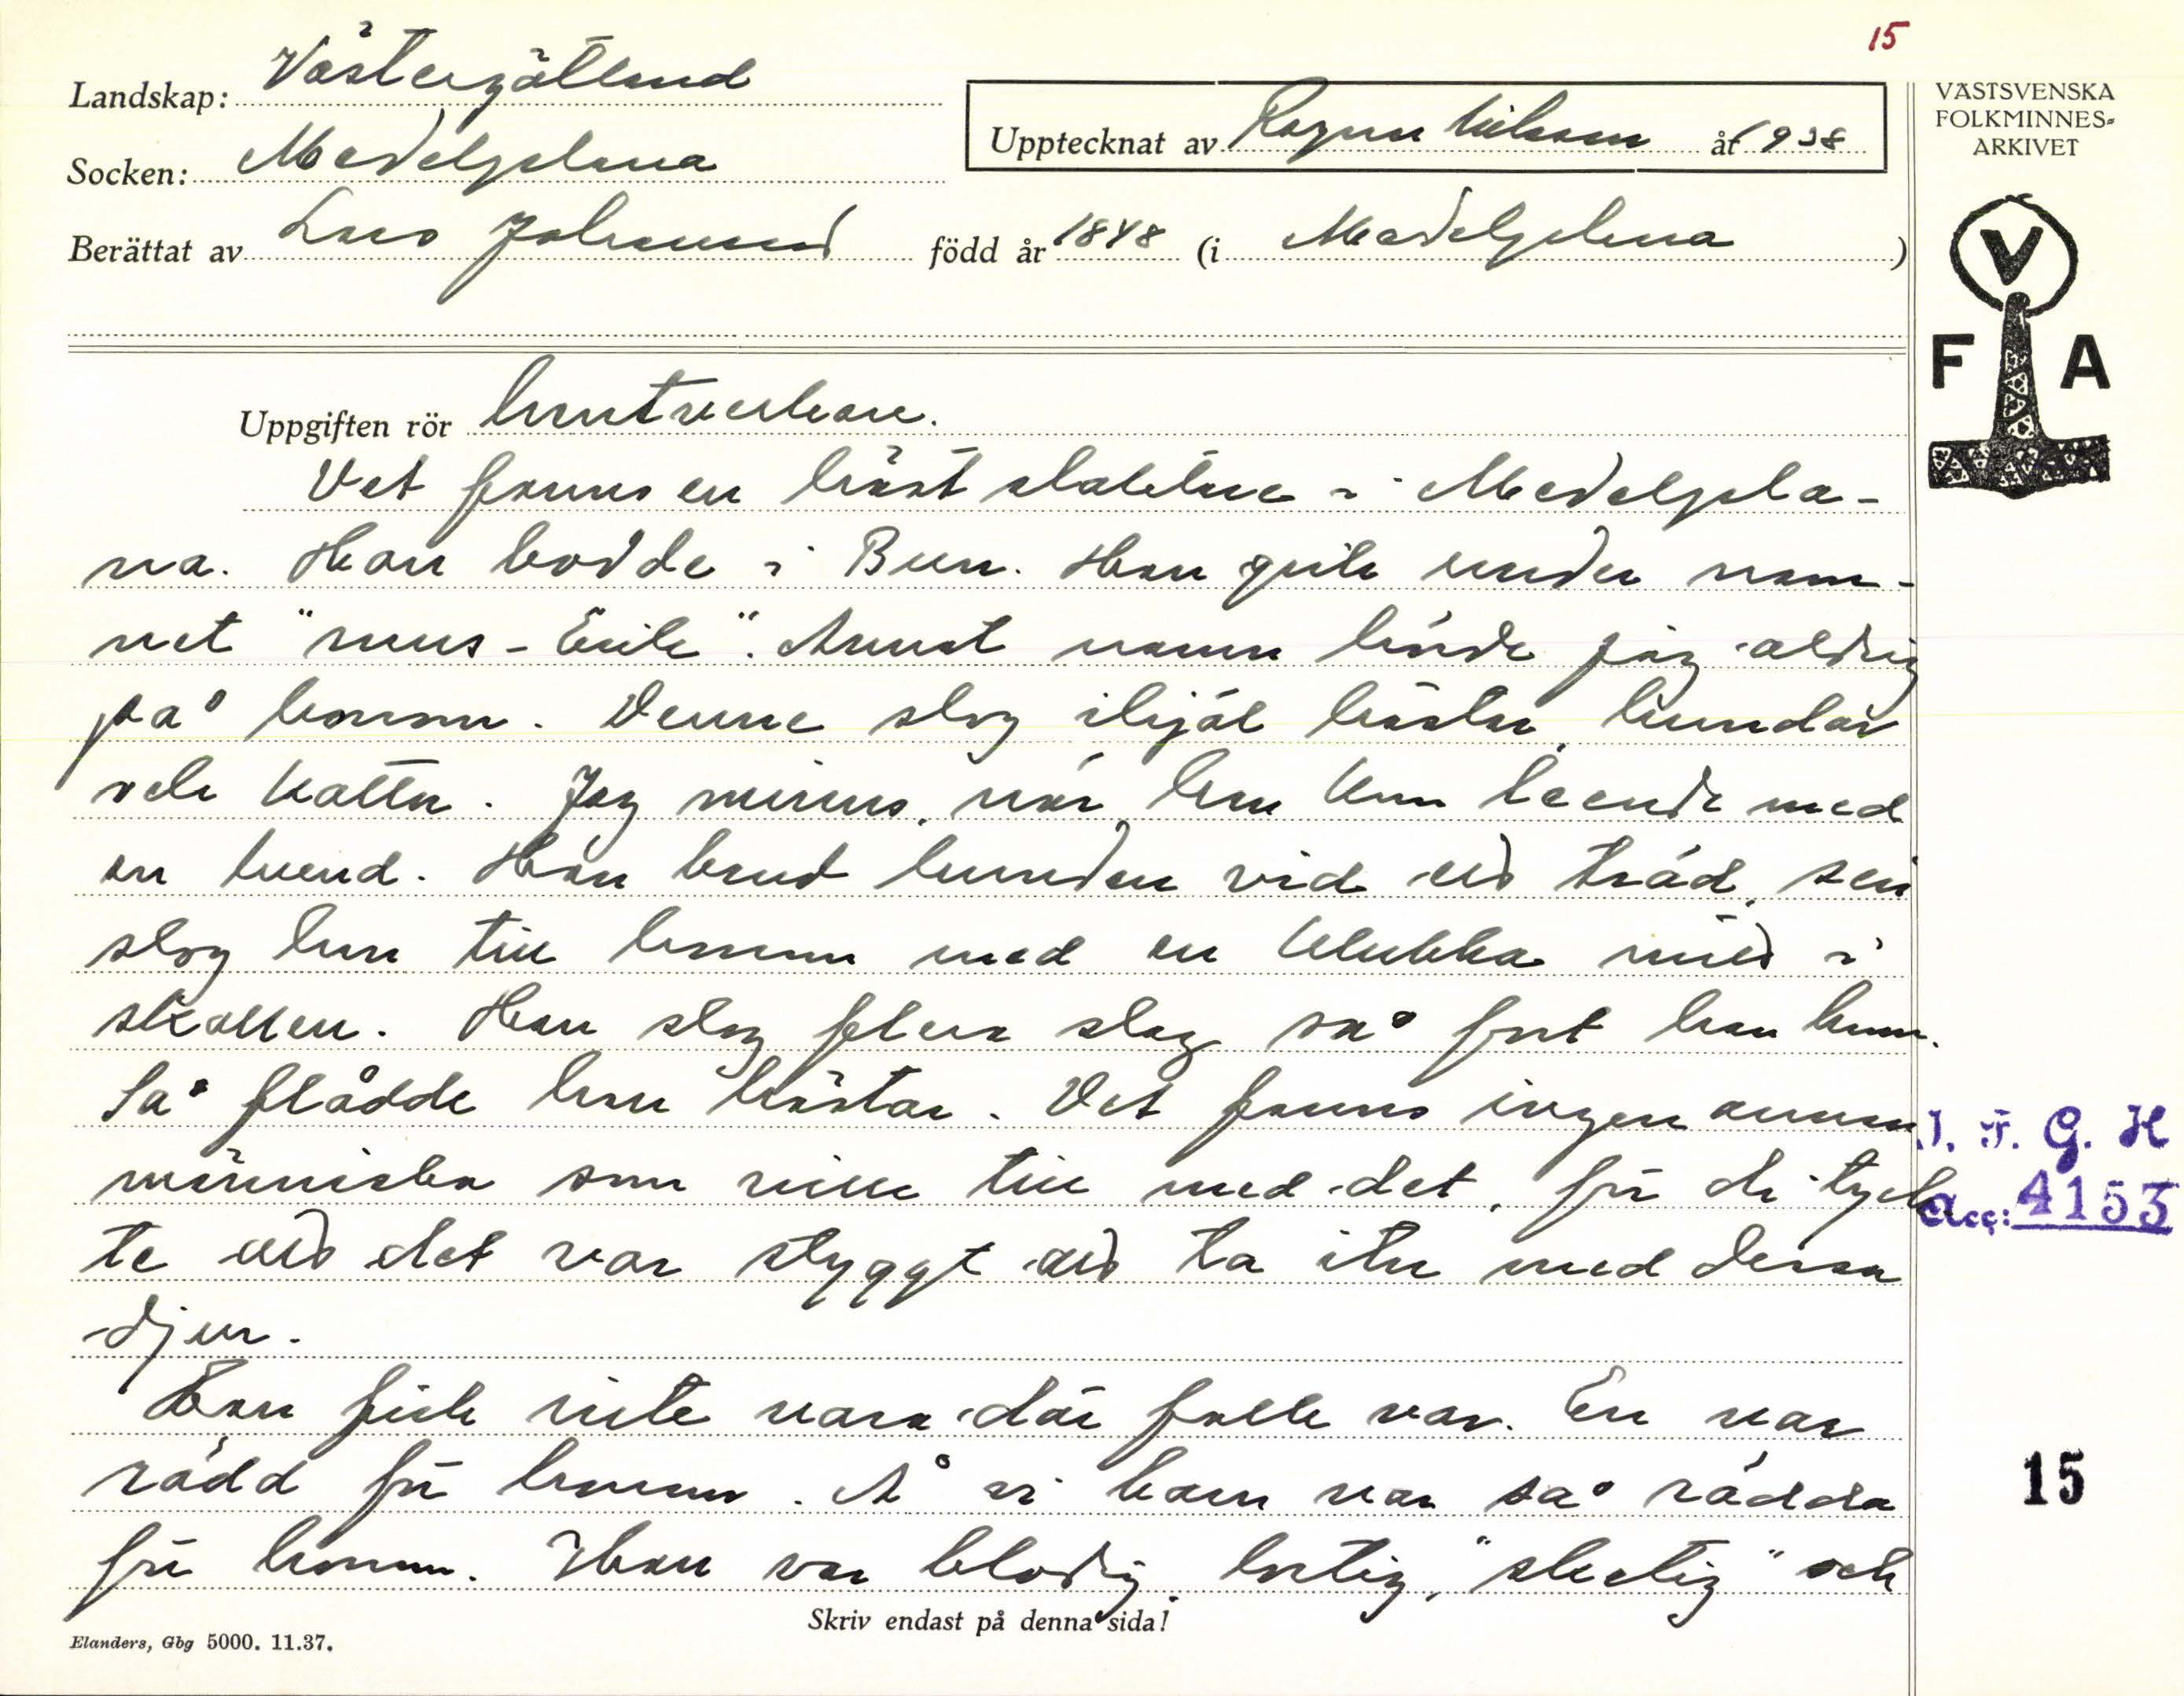 15
Landskap: Västergötland
Socken: Medelplana
Upptecknat av Ragnar Nilsson år 1938
Berättat av Lars Johansson född år 1848 (i Medelplana)
VÄSTSVENSKA
FOLKMINNES-
ARKIVET
V
F A
Uppgiften rör hantverkare.
Det fanns en häst slaktare i Medelpla-
na. Han bodde i Bun. Han gick under nam-
net "mus-Erik". Annat namn hörde jag aldrig
på honom. Denne slog ihjäl hästar, hundar
och katter. Jag minns, när han kom leende med
en hund. Han band hunden vid ett träd, sen
slog han till honom med en klubba mitt i
skallen. Han slog flera slag så fort han hann.
Så flådde han hästar. Det fanns ingen annan
människa som ville till med det, för de tyck
te att det var styggt att ta itu med dessa
djur.
Han fick inte vara där folk var. En var
rädd för honom. Å vi barn var så rädda
för honom. Han var blodig, lortig, "sketig" och
I. F. G. H
Acc: 4153
15
Skriv endast på denna sida!
Elanders, Gbg 5000. 11.37.